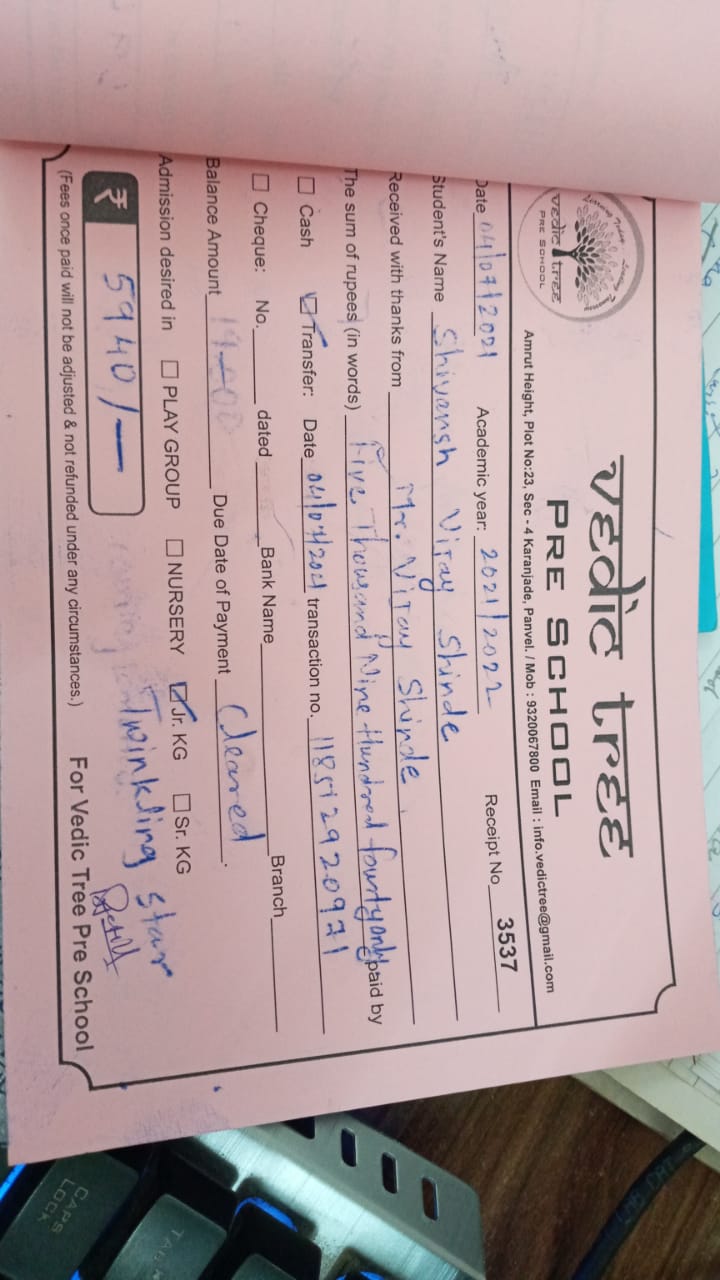 vedic tree
PRE SCHOOL
vedic tree
PRE SCHOOL
Amrut Height, Plot No:23, Sec - 4 Karanjade, Panvel. / Mob : 9320067800 Email : info.vedictree@gmail.com
Date 04/07/2021 Academic year: 2021/2022 Receipt No 3537
Student's Name Shivansh Vijay Shinde
Received with thanks from Mr. Vijay Shinde
The sum of rupees (in words) Five Thousand Nine Hundred fourty only paid by
☐ Cash ☑ Transfer: Date 04/07/2021 transaction no. 118512920921
☐ Cheque: No. dated Bank Name Branch
Balance Amount Due Date of Payment Cleared.
Admission desired in ☐ PLAY GROUP ☐ NURSERY ☑ Jr. KG ☐ Sr. KG
₹ 5940/- Twinkling star
(Fees once paid will not be adjusted & not refunded under any circumstances.) For Vedic Tree Pre School
CAPS
LOCK